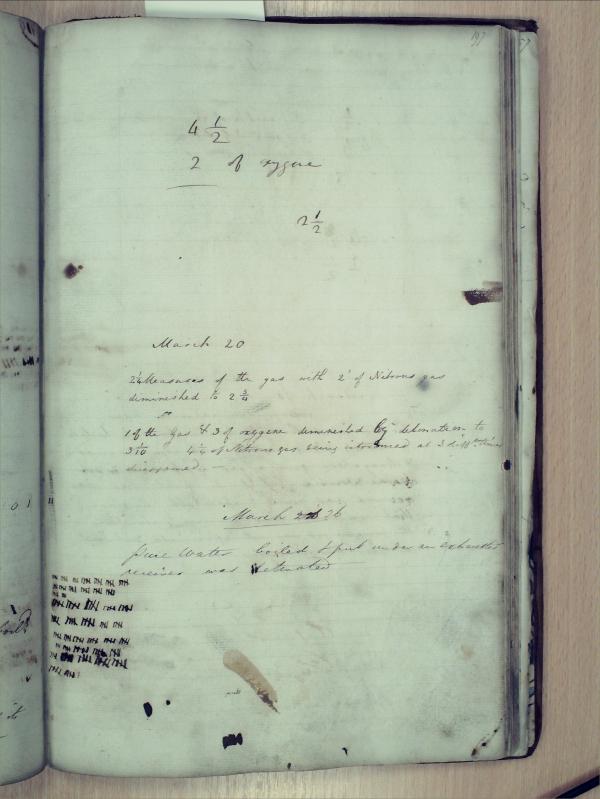 197
4 1/2
2 of oxygene
2 1/2
March 20
2 1/4 Measures of the gas with 2 of Nitrous gas
diminished to 2 3/4
1 of the gas & 3 of oxygene diminished by detonation to
3 1/10 4 1/4 of Nitrous gas being introduced at 3 diff times
March 26
Pure Water boiled & put under an exhausted
receiver was detonated